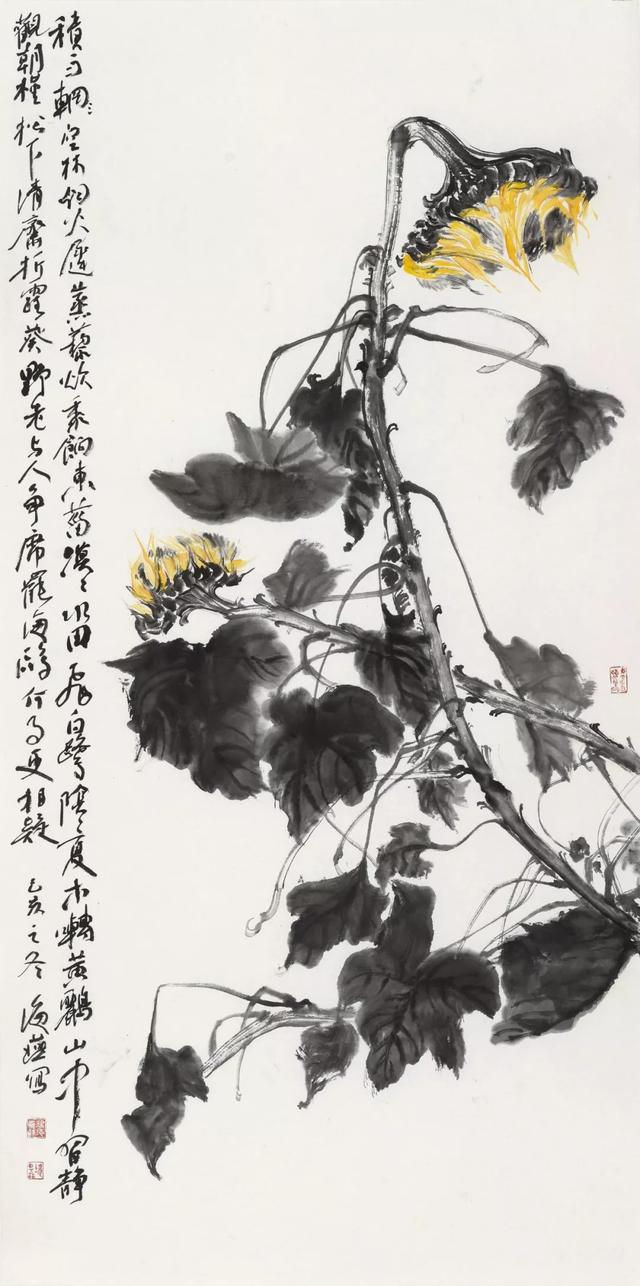 積雨輞空林烟火遲蒸藜炊黍餉東菑漠〻水田飛白鷺陰〻夏木囀黃鸝山中習靜
觀朝槿松下清齋折露葵野老与人爭席罷海鷗何事更相疑 己亥之冬 海 寫